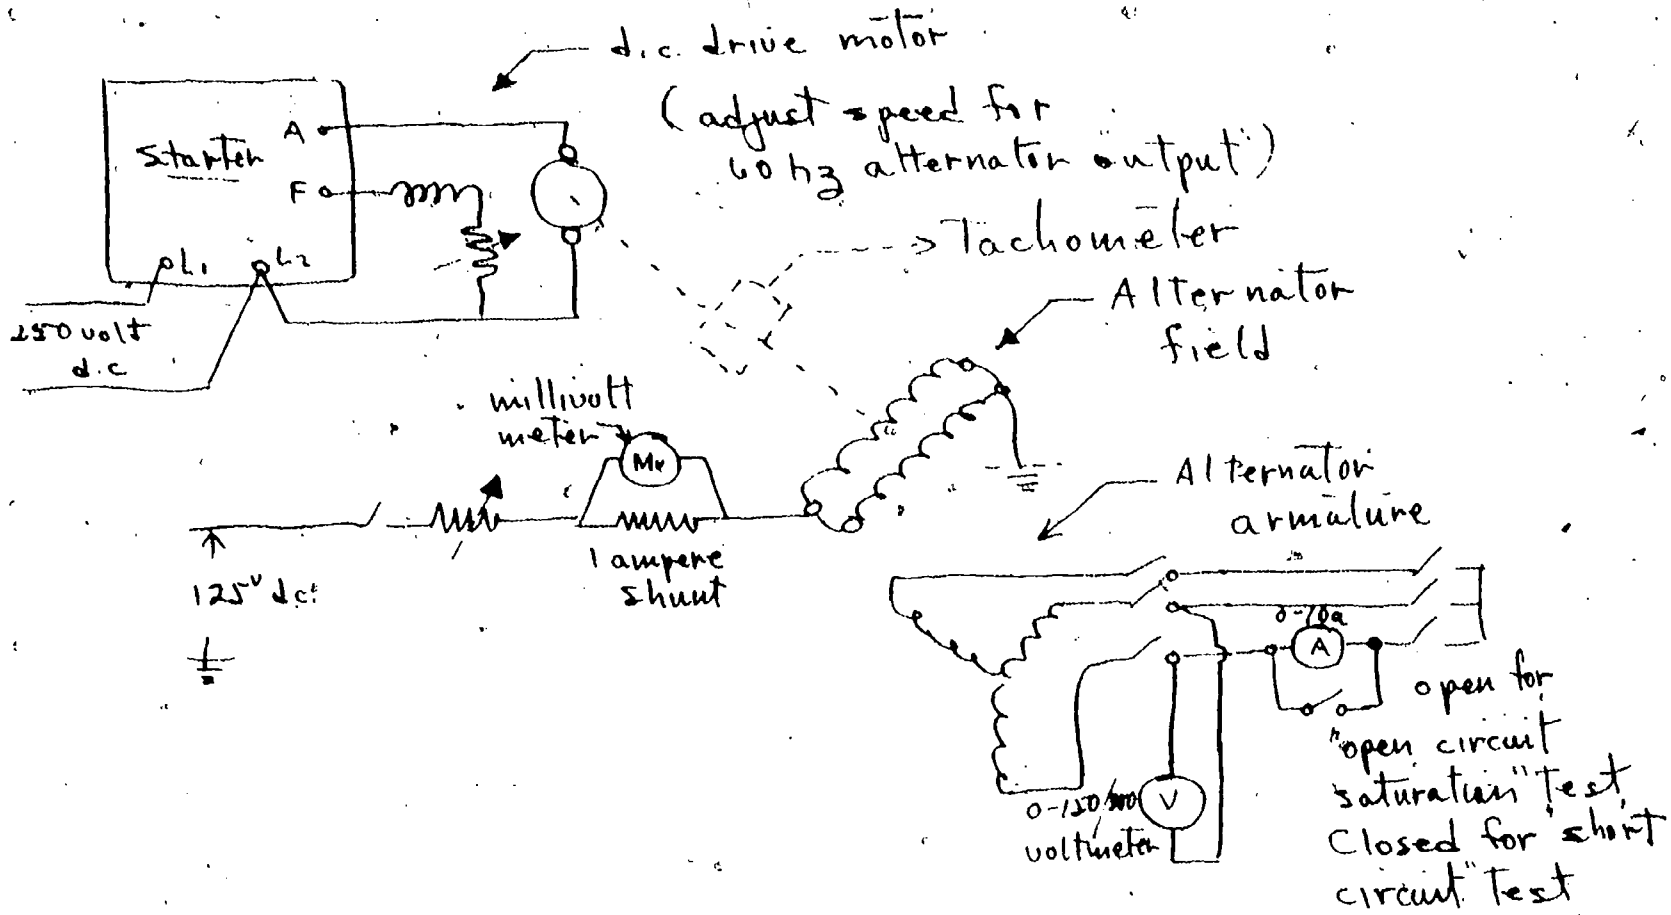 d.c. drive motor
(adjust speed for
60 hz alternator output")
Starter
A
F
L1
L2
250 volt
d.c
Tachometer
Alternator
field
millivolt
meter
Mv
1 ampere
shunt
125v d.c.
Alternator
armature
0-10a
A
V
voltmeter
open for
"open circuit
saturation" test,
Closed for "short
circuit" test